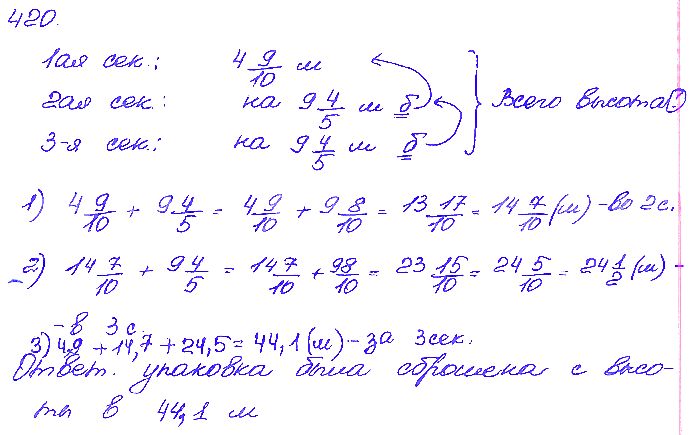 420.
1ая сек.: 4 9/10 м
2ая сек: на 9 4/5 м б
3-я сек.: на 9 4/5 м б
Всего высота ?
1) 4 9/10 + 9 4/5 = 4 9/10 + 9 8/10 = 13 17/10 = 14 7/10 (м) - во 2с.
2) 14 7/10 + 9 4/5 = 14 7/10 + 9 8/10 = 23 15/10 = 24 5/10 = 24 1/2 (м) -
- в 3 с.
3) 4,9 + 14,7 + 24,5 = 44,1 (м) - за 3сек.
Ответ. упаковка была сброшена с высо-
ты в 44,1 м